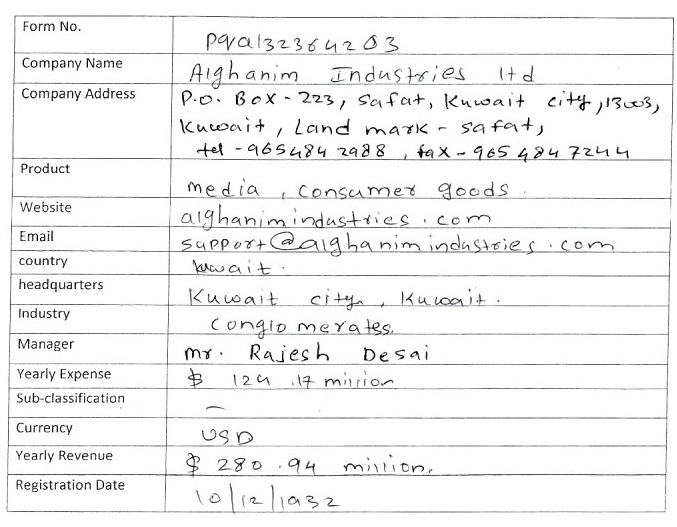 Form No.
pqa132364203
Company Name
Alghanim Industries ltd
Company Address
P.O. Box - 223, Safat, Kuwait city, 13003,
Kuwait, Land mark - safat,
tel - 965484 2988, fax - 965 484 7244
Product
media, consumer goods.
Website
alghanimindustries.com
Email
support@alghanimindustries.com
country
kuwait.
headquarters
Kuwait city, Kuwait.
Industry
conglomerates.
Manager
mr. Rajesh Desai
Yearly Expense
$ 124.17 million
Sub-classification
–
Currency
USD
Yearly Revenue
$ 280.94 million.
Registration Date
10/12/1932